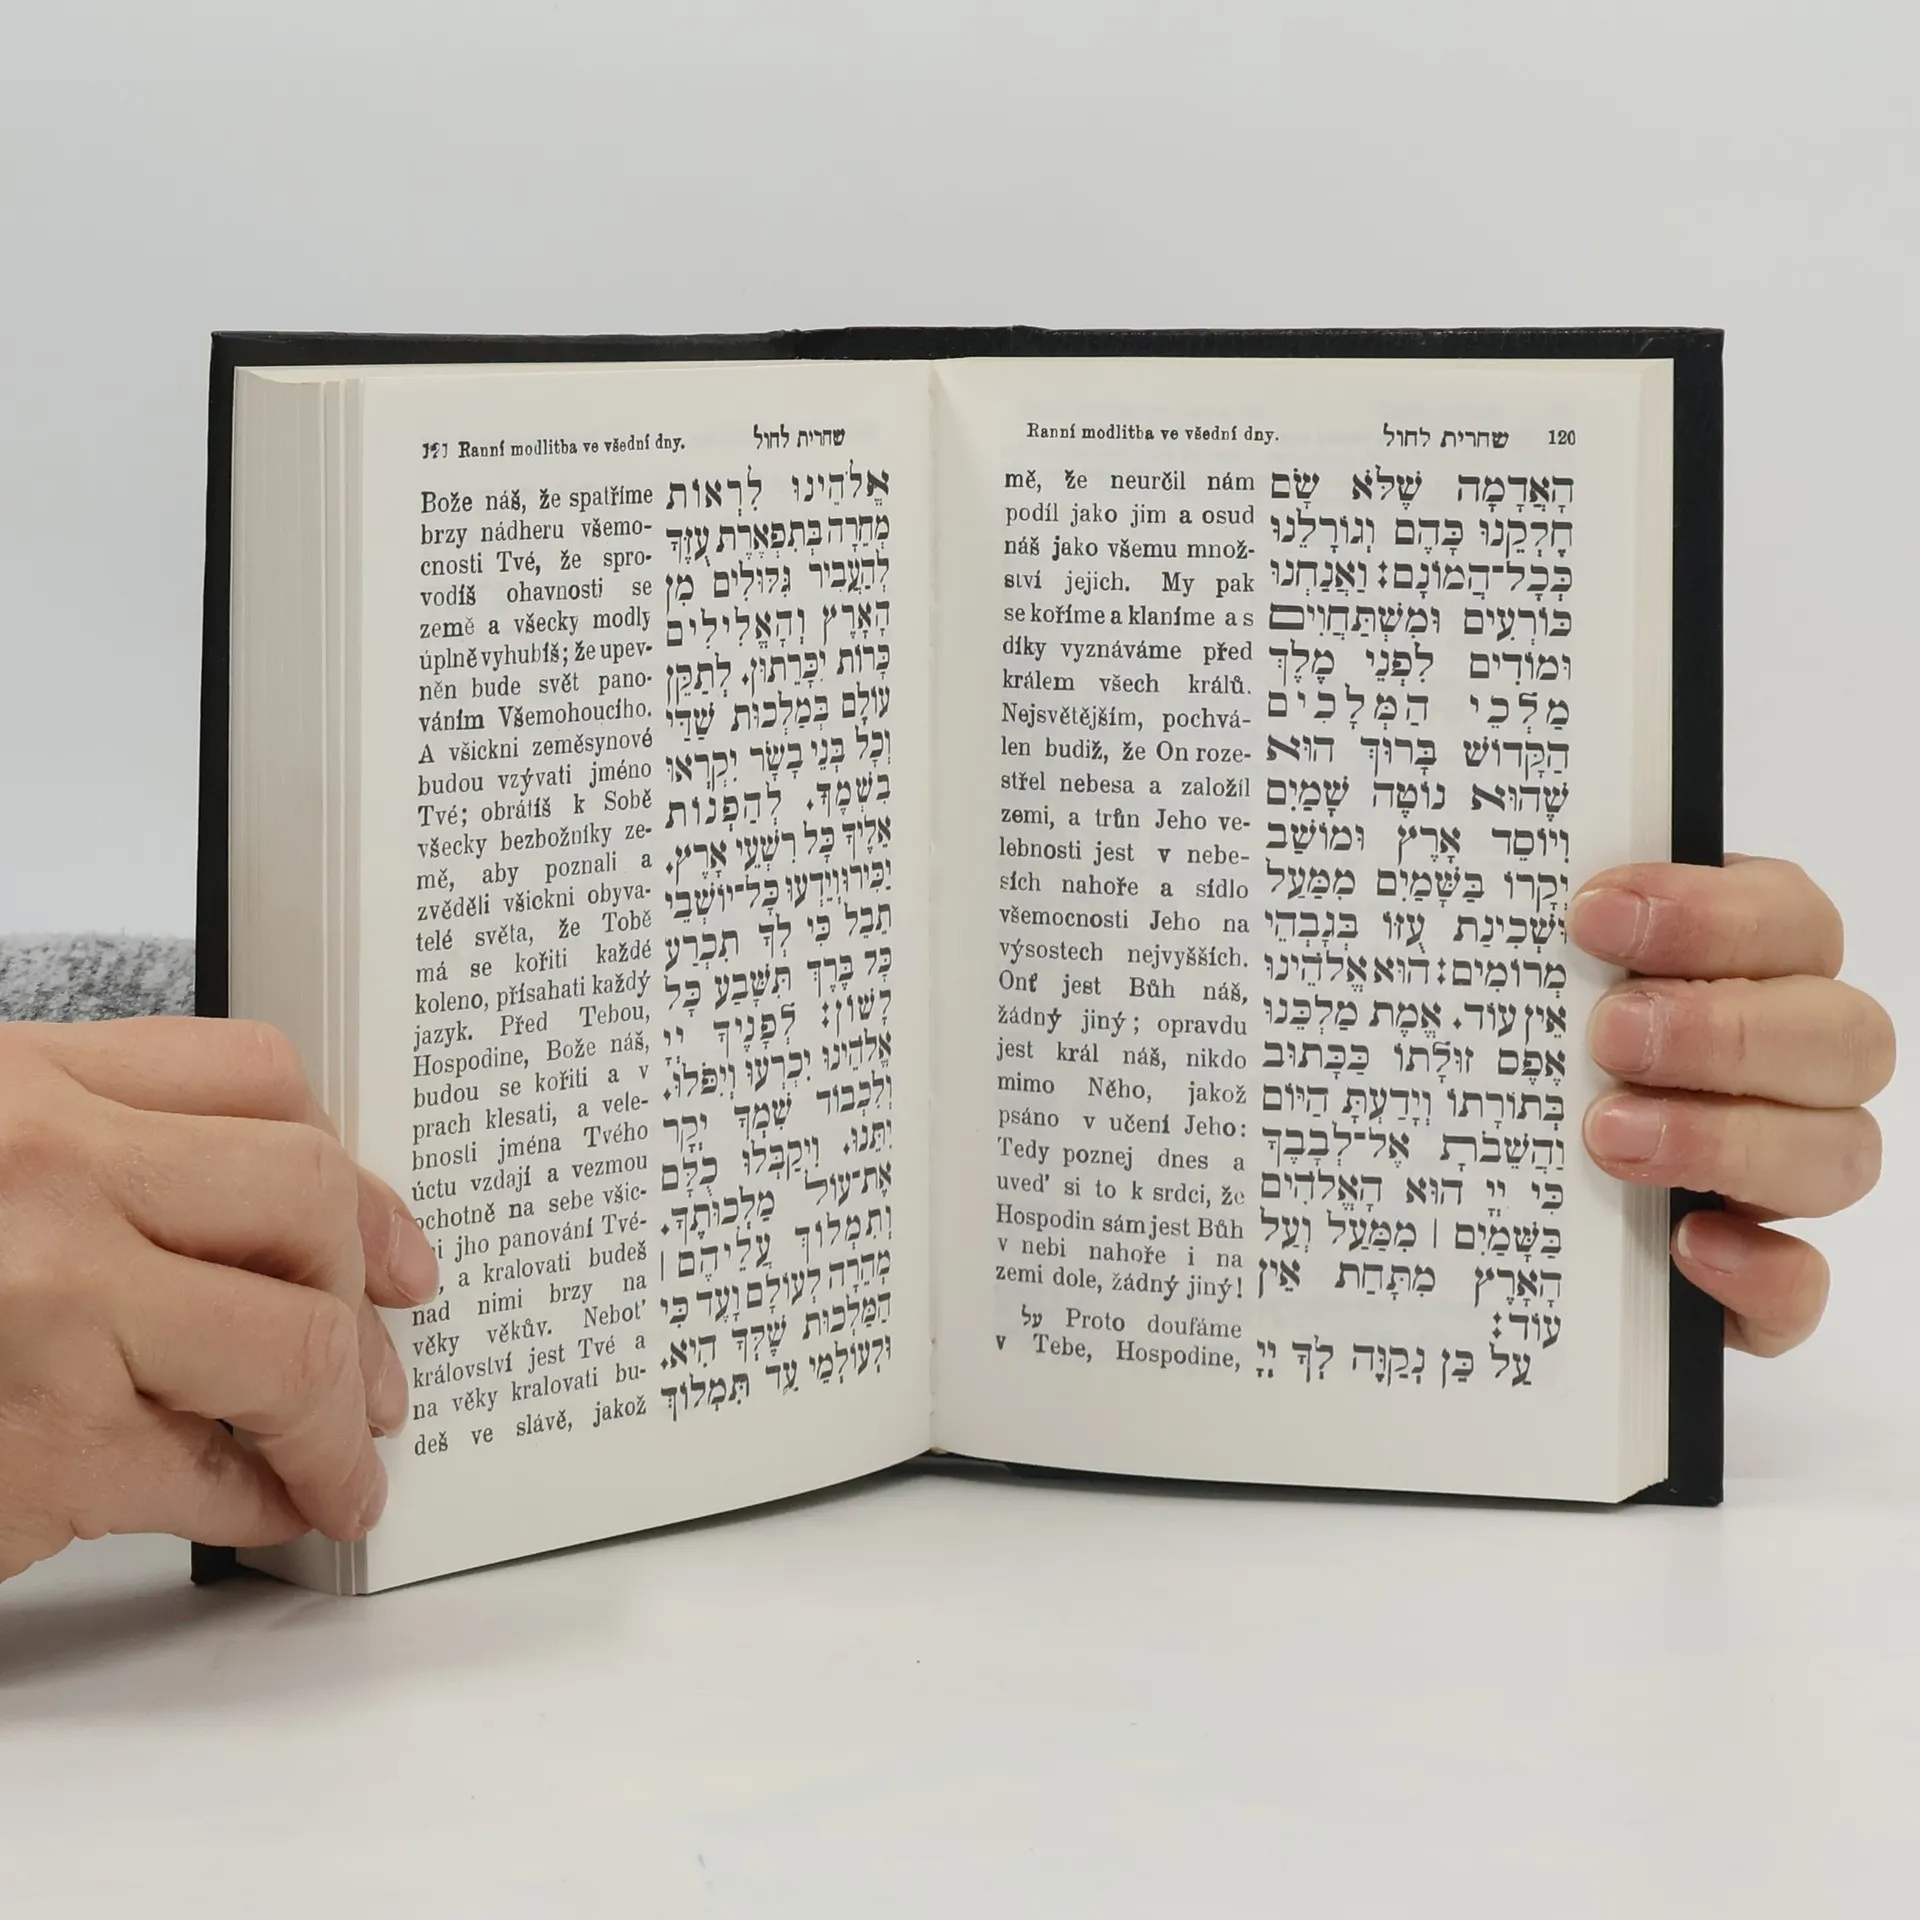 Ranní modlitba ve všední dny. שחרית לחול 120
הָאֲדָמָה שֶׁלֹּא שָׂם
חֶלְקֵנוּ כָּהֶם וְגוֹרָלֵנוּ
כְּכָל־הֲמוֹנָם: וַאֲנַחְנוּ
כּוֹרְעִים וּמִשְׁתַּחֲוִים
וּמוֹדִים לִפְנֵי מֶלֶךְ
מַלְכֵי הַמְּלָכִים
הַקָּדוֹשׁ בָּרוּךְ הוּא
שֶׁהוּא נוֹטֶה שָׁמַיִם
וְיוֹסֵד אָרֶץ וּמוֹשַׁב
יְקָרוֹ בַּשָּׁמַיִם מִמַּעַל
וּשְׁכִינַת עֻזּוֹ בְּגָבְהֵי
מְרוֹמִים: הוּא אֱלֹהֵינוּ
אֵין עוֹד. אֱמֶת מַלְכֵּנוּ
אֶפֶס זוּלָתוֹ כַּכָּתוּב
בְּתוֹרָתוֹ וְיָדַעְתָּ הַיּוֹם
וַהֲשֵׁבֹתָ אֶל־לְבָבֶךָ
כִּי יְיָ הוּא הָאֱלֹהִים
בַּשָּׁמַיִם | מִמַּעַל וְעַל
הָאָרֶץ מִתָּחַת אֵין
עוֹד:
עַל כֵּן נְקַוֶּה לְךָ יְיָ
mě, že neurčil nám
podíl jako jim a osud
náš jako všemu množ-
ství jejich. My pak
se koříme a klaníme a s
díky vyznáváme před
králem všech králů.
Nejsvětějším, pochvá-
len budiž, že On roze-
střel nebesa a založil
zemi, a trůn Jeho ve-
lebnosti jest v nebe-
sích nahoře a sídlo
všemocnosti Jeho na
výsostech nejvyšších.
Onť jest Bůh náš,
žádný jiný; opravdu
jest král náš, nikdo
mimo Něho, jakož
psáno v učení Jeho:
Tedy poznej dnes a
uveď si to k srdci, že
Hospodin sám jest Bůh
v nebi nahoře i na
zemi dole, žádný jiný!
על Proto doufáme
v Tebe, Hospodine,
121 Ranní modlitba ve všední dny. שחרית לחול
אֱלֹהֵינוּ לִרְאוֹת
מְהֵרָה בְּתִפְאֶרֶת עֻזֶּךָ
לְהַעֲבִיר גִּלּוּלִים מִן
הָאָרֶץ וְהָאֱלִילִים
כָּרוֹת יִכָּרֵתוּן. לְתַקֵּן
עוֹלָם בְּמַלְכוּת שַׁדַּי
וְכָל בְּנֵי בָשָׂר יִקְרְאוּ
בִשְׁמֶךָ. לְהַפְנוֹת
אֵלֶיךָ כָּל רִשְׁעֵי אָרֶץ.
יַכִּירוּ וְיֵדְעוּ כָּל־יוֹשְׁבֵי
תֵבֵל כִּי לְךָ תִכְרַע
כָּל בֶּרֶךְ תִּשָּׁבַע כָּל
לָשׁוֹן: לְפָנֶיךָ יְיָ
אֱלֹהֵינוּ יִכְרְעוּ וְיִפֹּלוּ.
וְלִכְבוֹד שִׁמְךָ יְקָר
יִתֵּנוּ. וִיקַבְּלוּ כֻלָּם
אֶת־עוֹל מַלְכוּתֶךָ.
וְתִמְלוֹךְ עֲלֵיהֶם |
מְהֵרָה לְעוֹלָם וָעֶד כִּי
הַמַּלְכוּת שֶׁלְּךָ הִיא.
וּלְעוֹלְמֵי עַד תִּמְלוֹךְ
Bože náš, že spatříme
brzy nádheru všemo-
cnosti Tvé, že spro-
vodíš ohavnosti se
země a všecky modly
úplně vyhubíš; že upev-
něn bude svět pano-
váním Všemohoucího.
A všickni zeměsynové
budou vzývati jméno
Tvé; obrátíš k Sobě
všecky bezbožníky ze-
mě, aby poznali a
zvěděli všickni obyva-
telé světa, že Tobě
má se kořiti každé
koleno, přísahati každý
jazyk. Před Tebou,
Hospodine, Bože náš,
budou se kořiti a v
prach klesati, a vele-
bnosti jména Tvého
úctu vzdají a vezmou
ochotně na sebe všic-
jho panování Tvé-
a kralovati budeš
nad nimi brzy na
věky věkův. Neboť
království jest Tvé a
na věky kralovati bu-
deš ve slávě, jakož